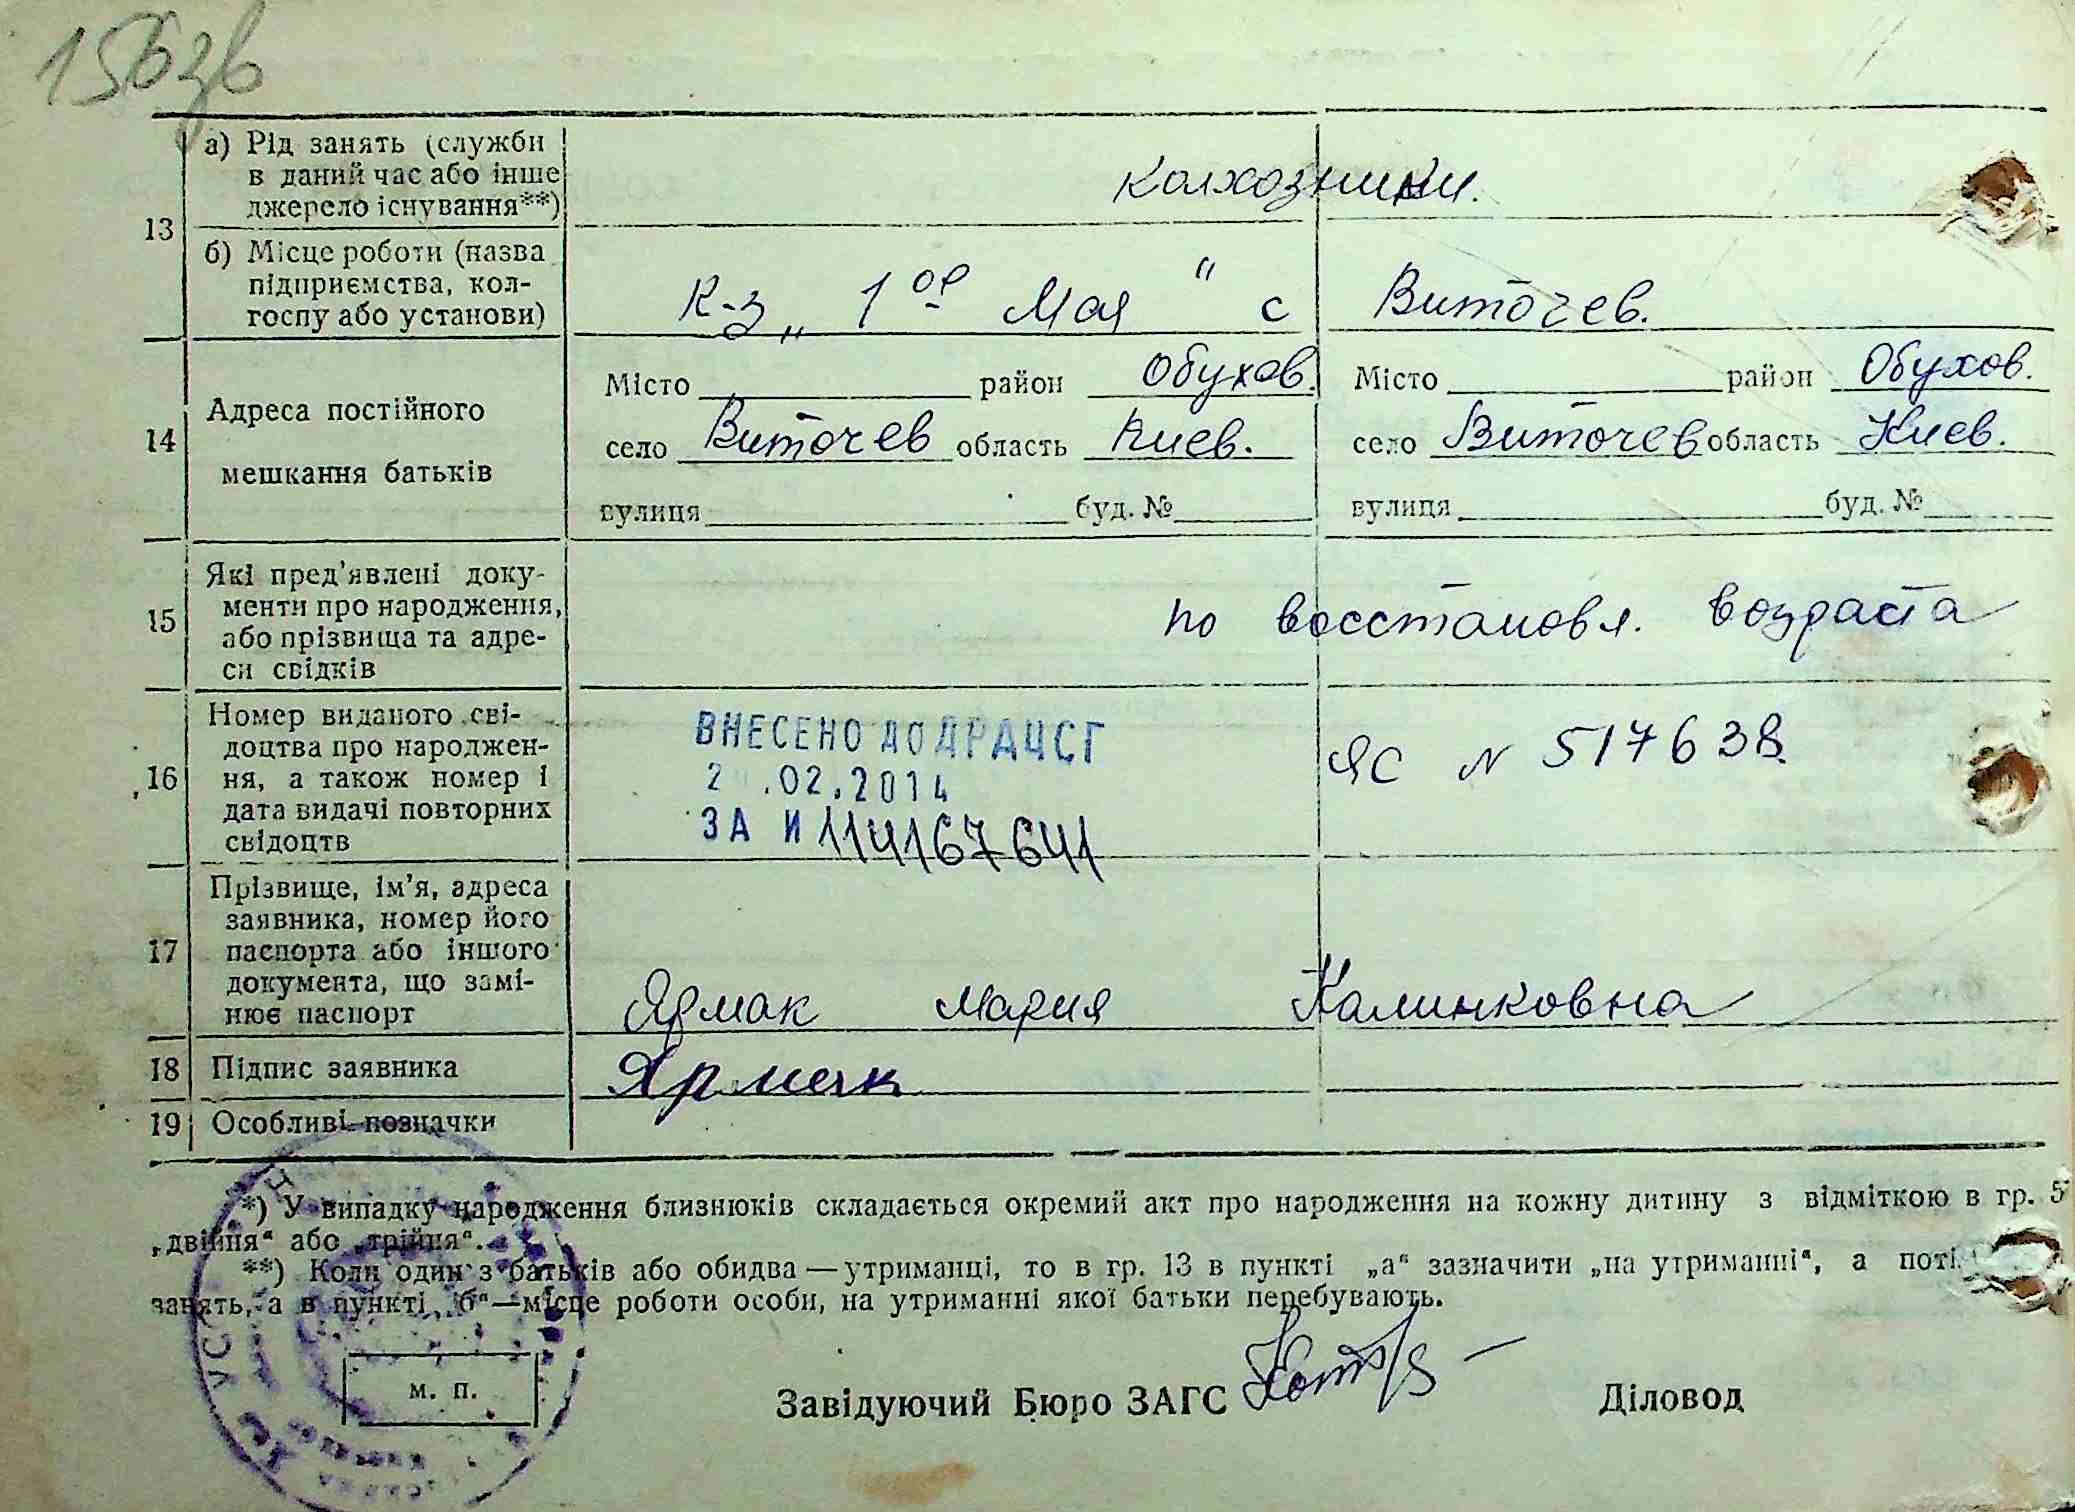 156зв
13
а) Рід занять (служби
в даний час або інше
джерело існування**)
колхозники.
б) Місце роботи (назва
підприємства, кол-
госпу або установи)
К-з „ 1ое Мая " с Виточев.
14
Адреса постійного
мешкання батьків
Місто район Обухов. Місто район Обухов.
село Виточев область Киев. село Виточев область Киев.
вулиця буд. № вулиця буд. №
15
Які пред'явлені доку-
менти про народження,
або прізвища та адре-
си свідків
по восстановл. возраста
16
Номер виданого сві-
доцтва про народжен-
ня, а також номер і
дата видачі повторних
свідоцтв
ВНЕСЕНО ДО ДРАЦСГ
.02.2014
ЗА И 114167641
ЯС N 517638
17
Прізвище, ім'я, адреса
заявника, номер його
паспорта або іншого
документа, що замі-
нює паспорт
Ярмак Мария Калинковна
18 Підпис заявника
Ярмак
19 Особливі позначки
*) У випадку народження близнюків складається окремий акт про народження на кожну дитину з відміткою в гр. 5
„двійня“ або „трійня“.
**) Коли один з батьків або обидва — утриманці, то в гр. 13 в пункті „а“ зазначити „на утриманні“, а поті
занять, а в пункті „б“—місце роботи особи, на утриманні якої батьки перебувають.
м. п.
Завідуючий Бюро ЗАГС
Діловод